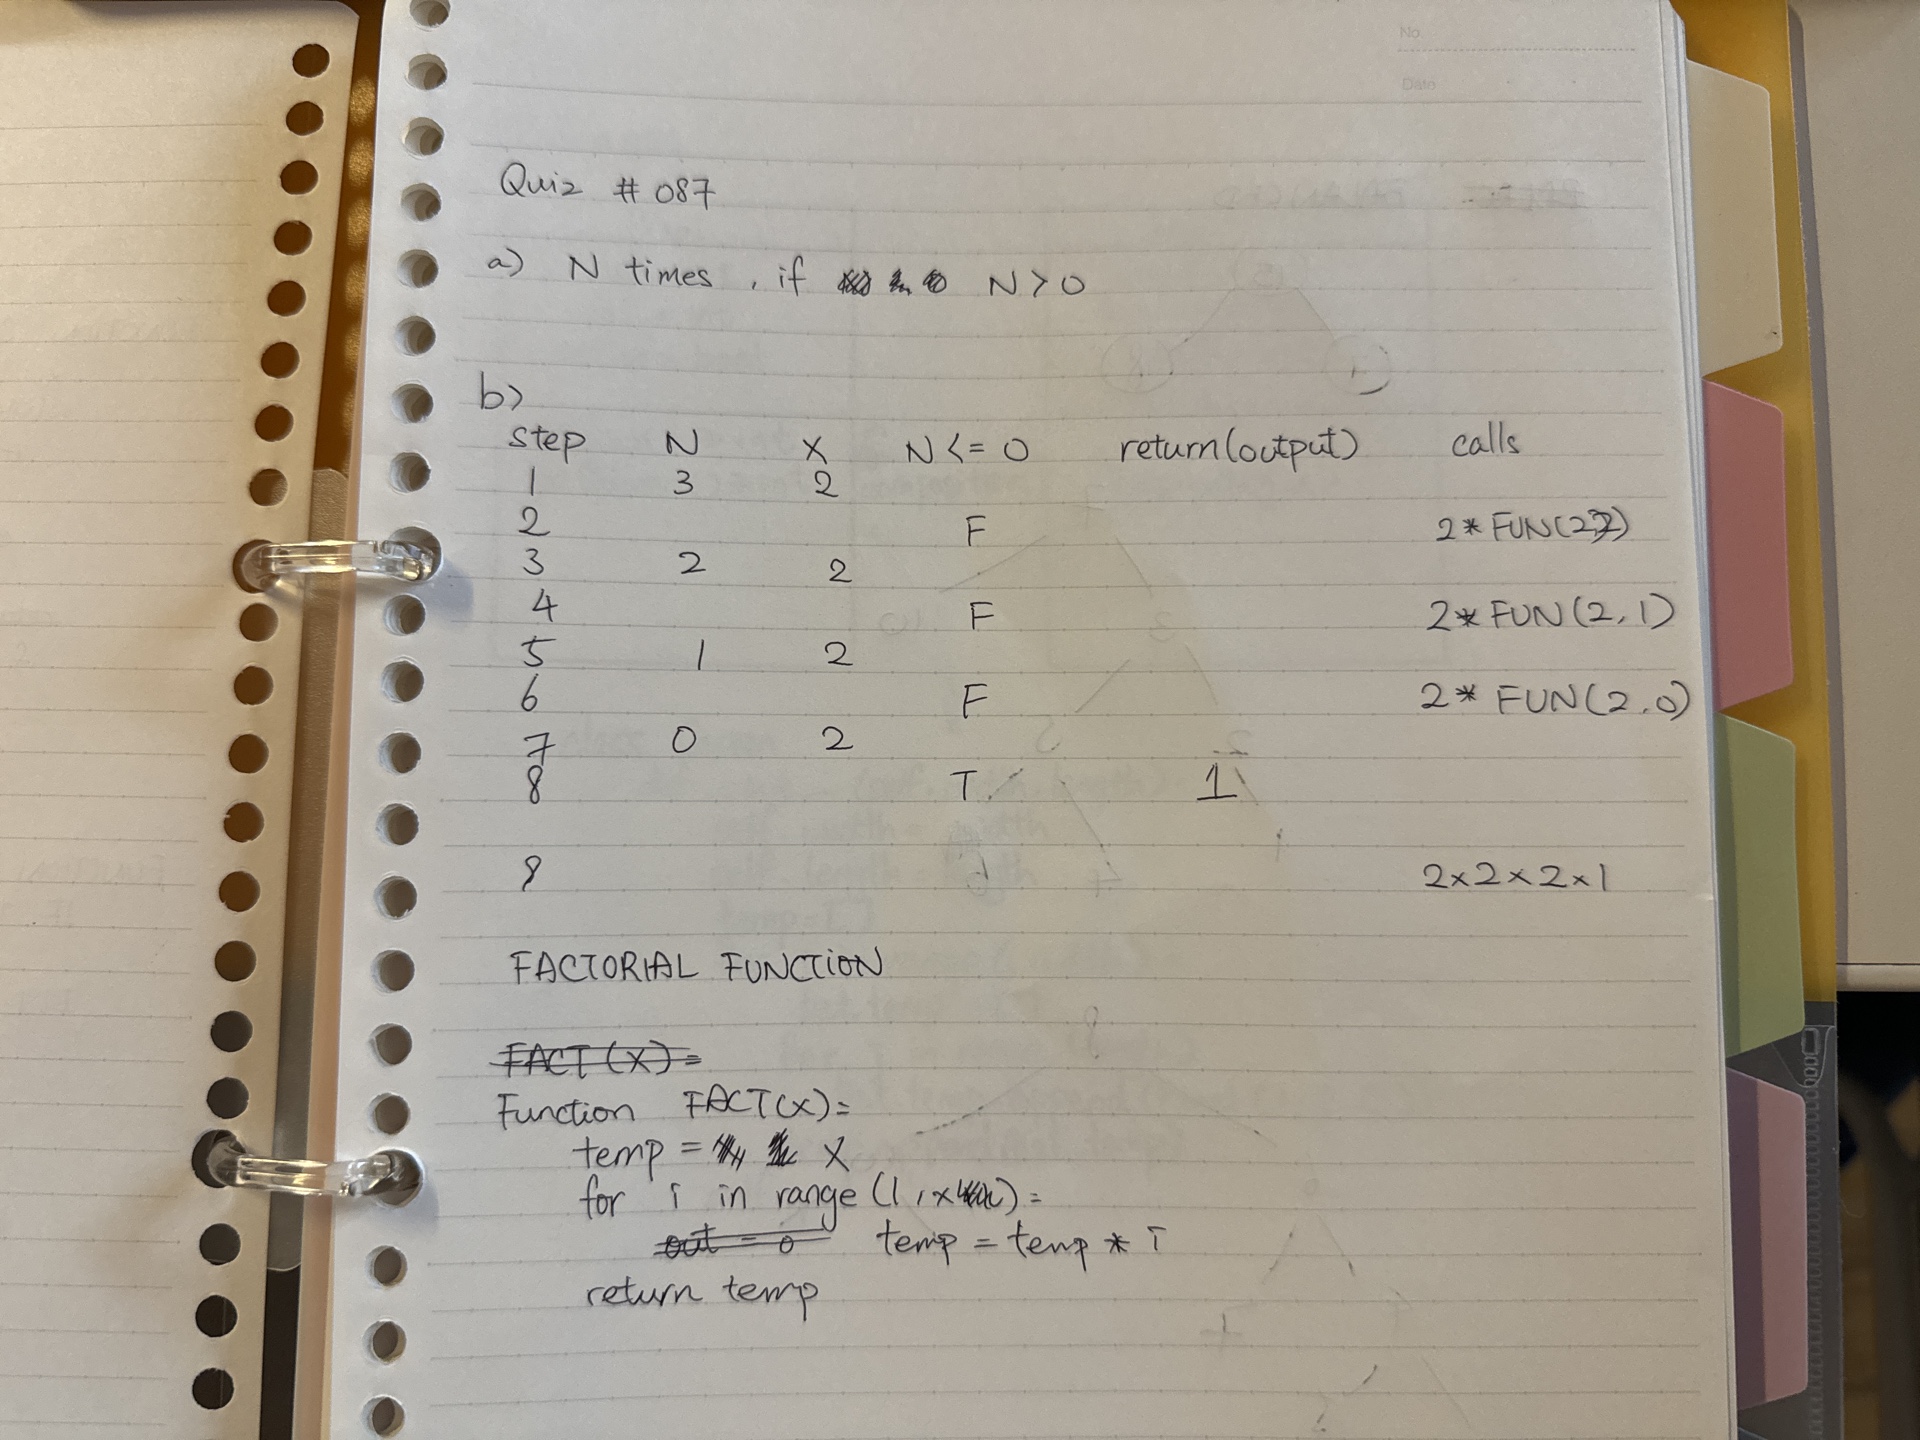 No.
Date
Quiz # 087
a) N times, if N > 0
b)
step N X N <= 0 return (output) calls
1 3 2
2 F 2 * FUN(2,2)
3 2 2
4 F 2 * FUN(2, 1)
5 1 2
6 F 2 * FUN(2,0)
7 0 2
8 T 1
8 2x2x2x1
FACTORIAL FUNCTION
FACT(X)=
Function FACT(X)=
temp = X
for i in range (1, x ) =
out = 0 temp = temp * i
return temp